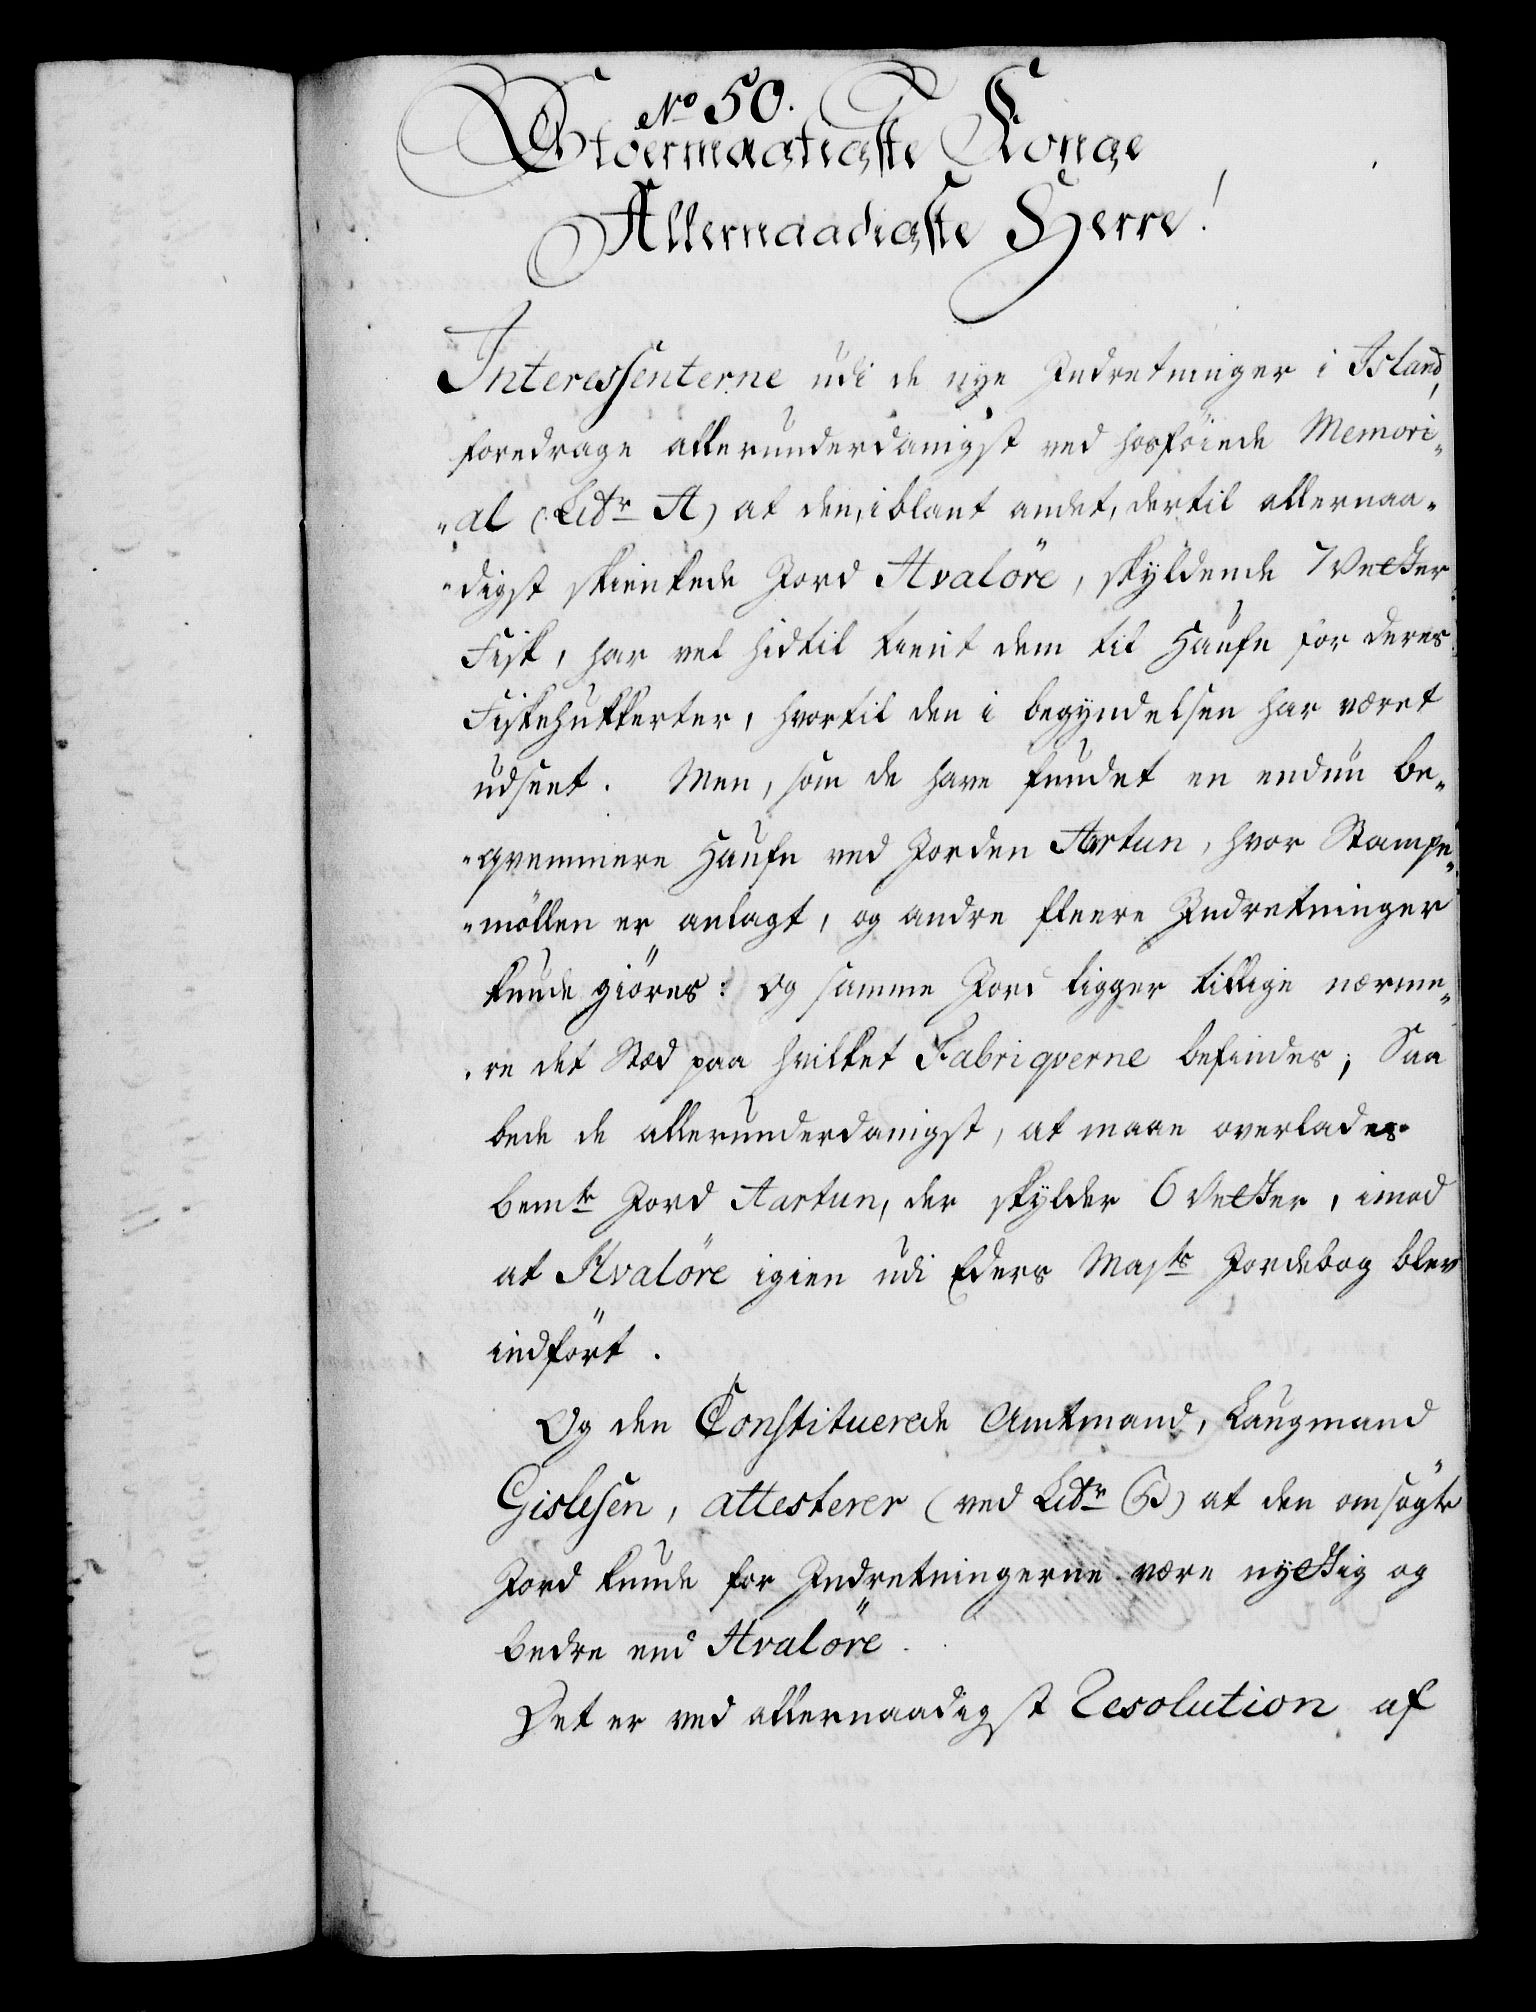 No 50.
Stoermægtigste Konge
Allernaadigste Herre!
Interessenterne udi de nye Indretninger i Island,
foredrage allerunderdanigst ved hosföiede Memori-
-al (Litr A) at den, iblant andet, dertil allernaa-
-digst skienkede Jord Hvalöre, skyldende 7 Vetter
Fisk, har vel hidtil tient dem til Haufn for deres
Fiskehukkerter, hvortil den i begyndelsen har været
udseet. Men, som de have fundet en endnu be-
-qvemmere Haufn ved Jorden Aartun, hvor Stampe-
-möllen er anlagt, og andre fleere Indretninger
kunde giöres: Og samme Jord ligger tillige nærme-
-re det Stæd paa hvilket Fabriqverne befindes; Saa
bede de allerunderdanigst, at maae overlades
bemte Jord Aartun, der skylder 6 Vetter, imod
at Hvalöre igien udi Eders Majts Jordebog blev
indfört.
Og den Constituerede Amtmand, Laugmand
Gislesen, attesterer (ved Litr B) at den omsögte
Jord kunde for Indretningerne være nyttig og
bedre end Hvalöre.
Det er ved allernaadigst Resolution af